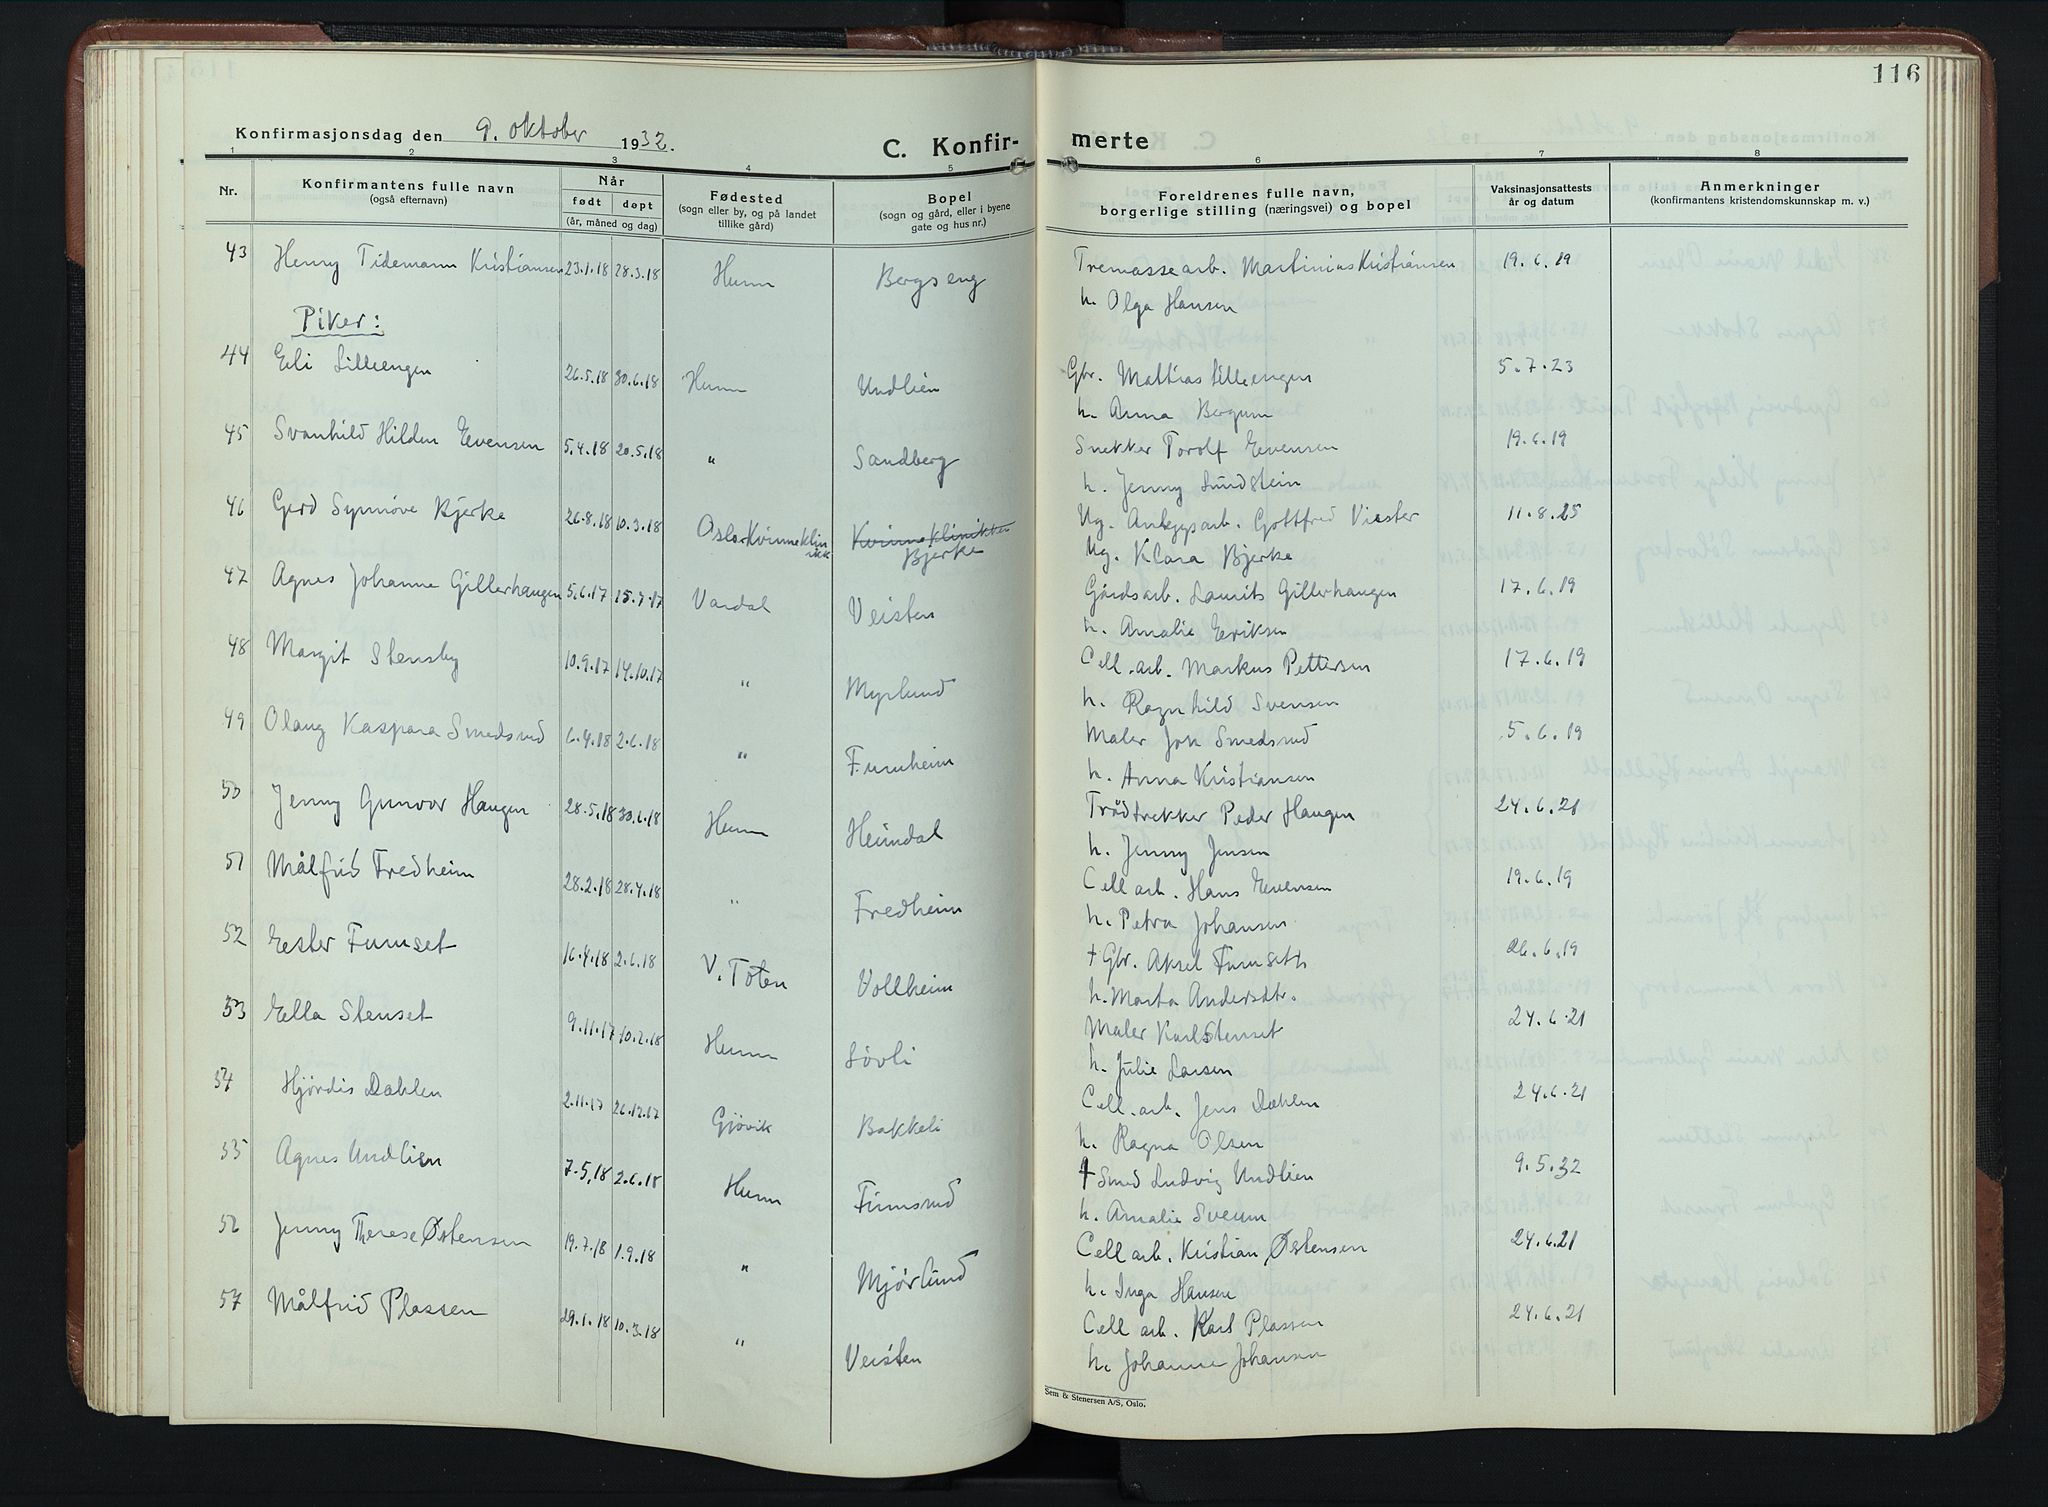 116
Konfirmasjonsdag den 9. oktober 1932.
C. Konfir-merte
1 2 3 4 5 6 7 8
Nr. Konfirmantens fulle navn (også efternavn) Når født døpt (år, måned og dag) Fødested (sogn eller by, og på landet tillike gård) Bopel (sogn og gård, eller i byene gate og hus nr.) Foreldrenes fulle navn, borgerlige stilling (næringsvei) og bopel Vaksinasjonsattests år og datum Anmerkninger (konfirmantens kristendomskunnskap m. v.)
43 Henny Tidemann Kristiansen 23.1.18 28.3.18 Hunn Bergseng Tremassearb. Martinius Kristiansen 19.6.19
h. Olga Hansen
Piker:
44 Eli Lilleengen 26.5.18 30.6.18 Hunn Undlien Gbr. Mathias Lilleengen 5.7.23
h. Anna Bergum
45 Svanhild Hilden Evensen 5.4.18 20.5.18 " Sandberg Snekker Torolf Evensen 19.6.19
h. Jenny Sundstein
46 Gerd Synnøve Bjerke 26.8.18 10.3.18 Oslo Kvinneklinikk Kvinneklinikken Bjerke Ug. Anleggsarb. Gottfred Viester 11.8.25
Ug. Klara Bjerke
47 Agnes Johanne Gillerhaugen 5.6.17 15.7.17 Vardal Veisten Gårdsarb. Laurits Gillerhaugen 17.6.19
h. Amalie Eriksen
48 Margit Stensby 10.9.17 14.10.17 " Myrlund Cell.arb. Markus Pettersen 17.6.19
h. Ragnhild Svensen
49 Olaug Kaspara Smedsrud 6.4.18 2.6.18 " Furuheim Maler Jon Smedsrud 5.6.19
h. Anna Kristiansen
50 Jenny Gunvor Haugen 28.5.18 30.6.18 Hunn Heimdal Trådtrekker Peder Haugen 24.6.21
h. Jenny Jensen
51 Målfrid Fredheim 28.2.18 28.4.18 " Fredheim Cell arb. Hans Evensen 19.6.19
h. Petra Johansen
52 Ester Furuset 16.4.18 2.6.18 V. Toten Vollheim † Gbr. Aksel Furuseth 26.6.19
h. Marta Andersdtr.
53 Ella Stenset 9.11.17 10.2.18 Hunn Løvli Maler Karl Stenset 24.6.21
h. Julie Larsen
54 Hjørdis Dæhlen 2.11.17 26.12.17 Gjøvik Bakkeli Cell.arb. Jens Dæhlen 24.6.21
h. Ragna Olsen
55 Agnes Undlien 7.5.18 2.6.18 Hunn Finnsrud † Smed Ludvig Undlien 9.5.32
h. Amalie Sveum
56 Jenny Therese Østensen 19.7.18 1.9.18 " Mjørlund Cell arb. Kristian Østensen 24.6.21
h. Inga Hansen
57 Målfrid Plassen 29.1.18 10.3.18 " Veisten Cell arb. Karl Plassen 24.6.21
h. Johanne Johansen
Sem & Stenersen A/S, Oslo.